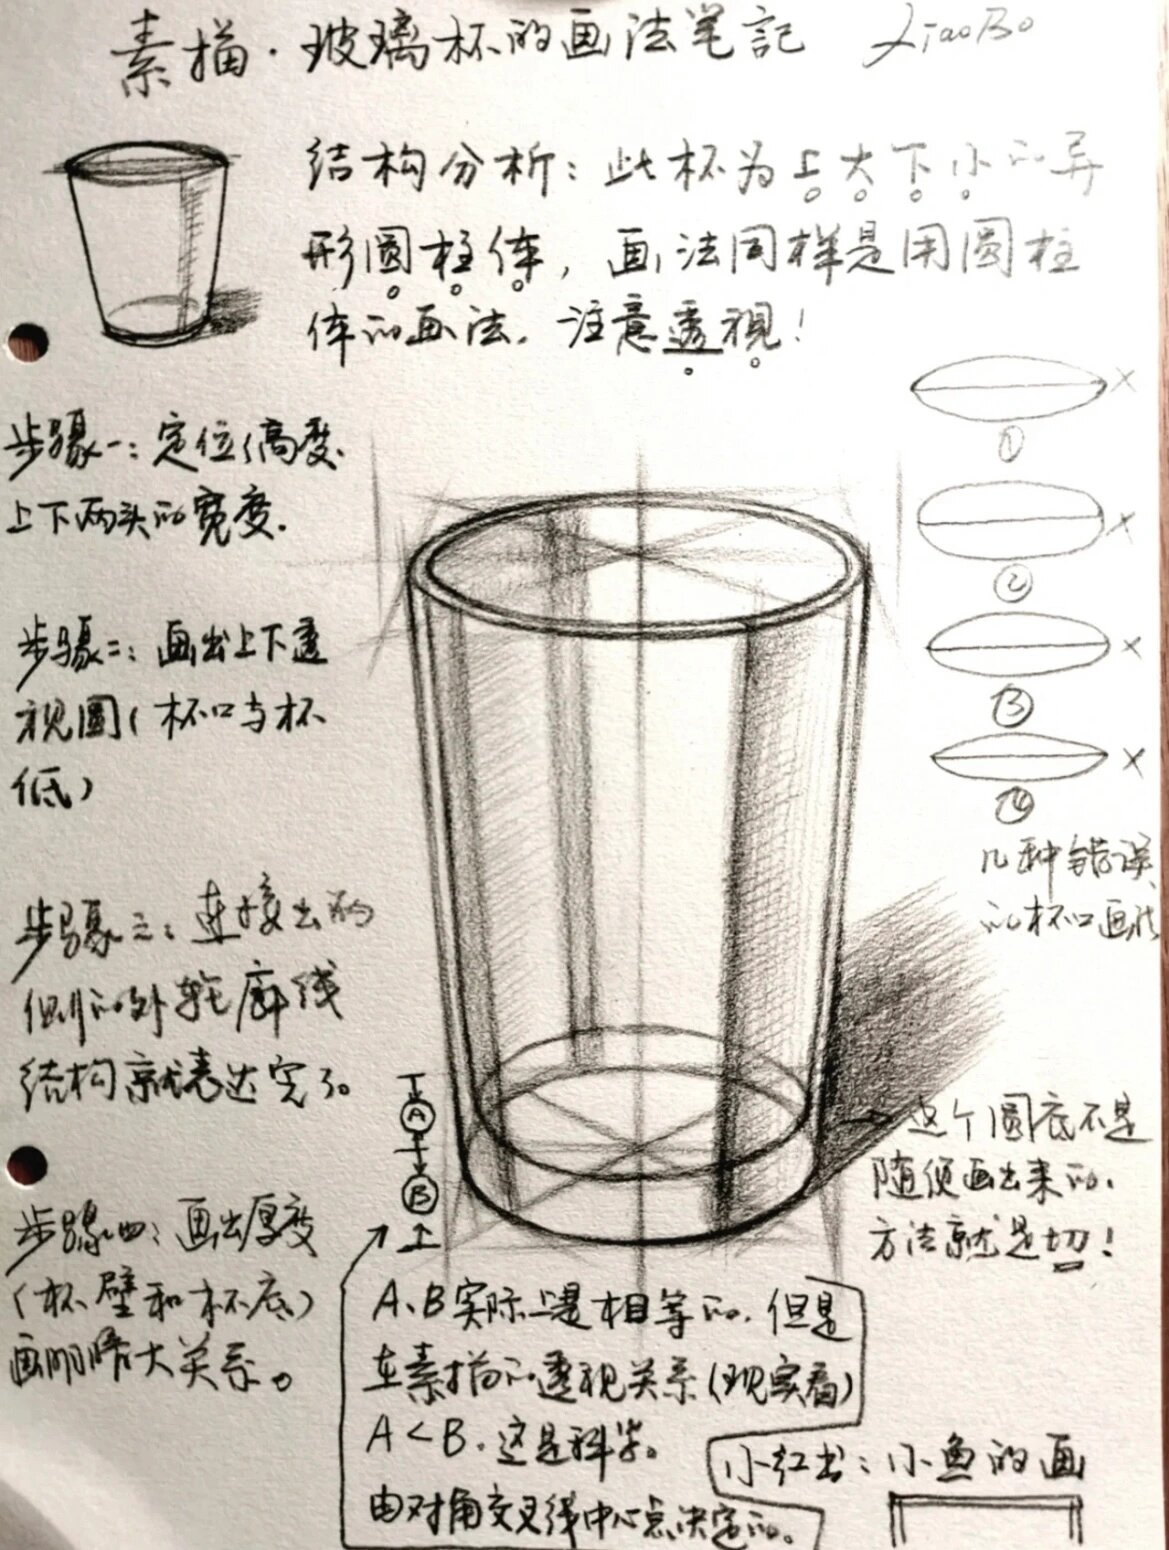 素描·玻璃杯的画法笔記 XiaoBo
结构分析：此杯为上大下小的异
形圆柱体，画法同样是用圆柱
体的画法，注意透视！
步骤一：定位（高度.
上下两头的宽度.
步骤二：画出上下透
视圆（杯口与杯
低）
步骤三：连接出两
侧的外轮廓线
结构就表达完了。
步骤四：画出厚度
（杯壁和杯底）
画明暗大关系。
×
①
×
②
×
③
×
④
几种错误
的杯口画法
A
B
→这个圆底不是
随便画出来的.
方法就是切！
A、B实际上是相等的.但是
在素描的透视关系（现实看）
A<B.这是科学。
由对角交叉线中心点决定的。
小红书：小鱼的画